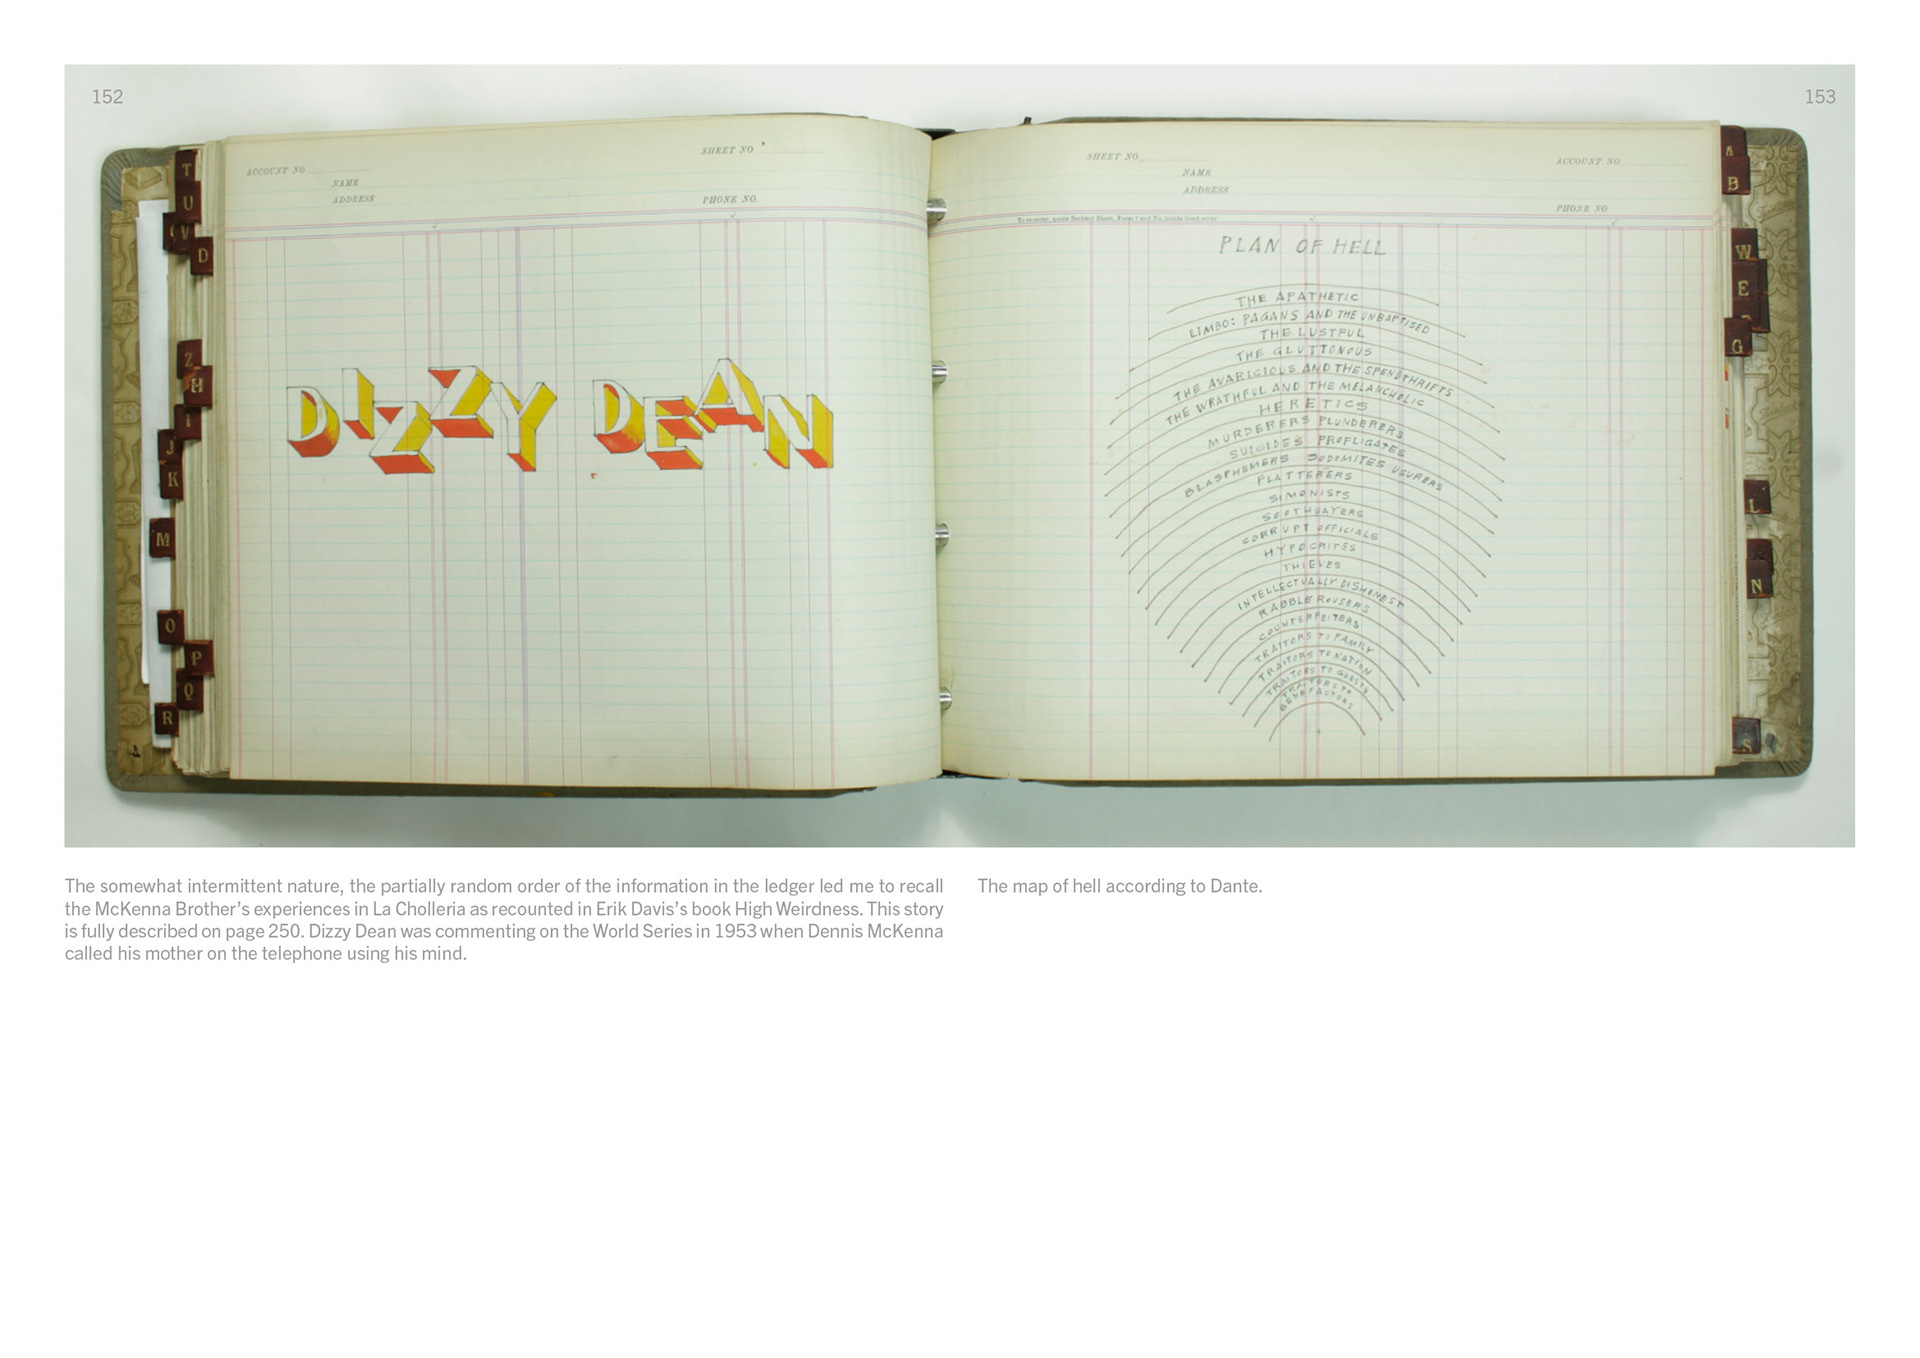 152
153
SHEET NO
ACCOUNT NO
NAME
ADDRESS
PHONE NO.
T
U
V
D
Z
H
I
J
K
M
O
P
Q
R
DIZZY DEAN
SHEET NO
ACCOUNT NO
NAME
ADDRESS
PHONE NO
A
B
W
E
G
L
N
S
PLAN OF HELL
THE APATHETIC
LIMBO: PAGANS AND THE UNBAPTISED
THE LUSTFUL
THE GLUTTONOUS
THE AVARICIOUS AND THE SPENDTHRIFTS
THE WRATHFUL AND THE MELANCHOLIC
HERETICS
MURDERERS PLUNDERERS
SUICIDES PROFLIGATES
BLASPHEMERS SODOMITES USURERS
FLATTERERS
SIMONISTS
SOOTHSAYERS
CORRUPT OFFICIALS
HYPOCRITES
THIEVES
INTELLECTUALLY DISHONEST
RABBLE ROUSERS
COUNTERFEITERS
TRAITORS TO FAMILY
TRAITORS TO NATION
TRAITORS TO GUESTS
TRAITORS TO
BENEFACTORS
The somewhat intermittent nature, the partially random order of the information in the ledger led me to recall
the McKenna Brother's experiences in La Cholleria as recounted in Erik Davis's book High Weirdness. This story
is fully described on page 250. Dizzy Dean was commenting on the World Series in 1953 when Dennis McKenna
called his mother on the telephone using his mind.
The map of hell according to Dante.